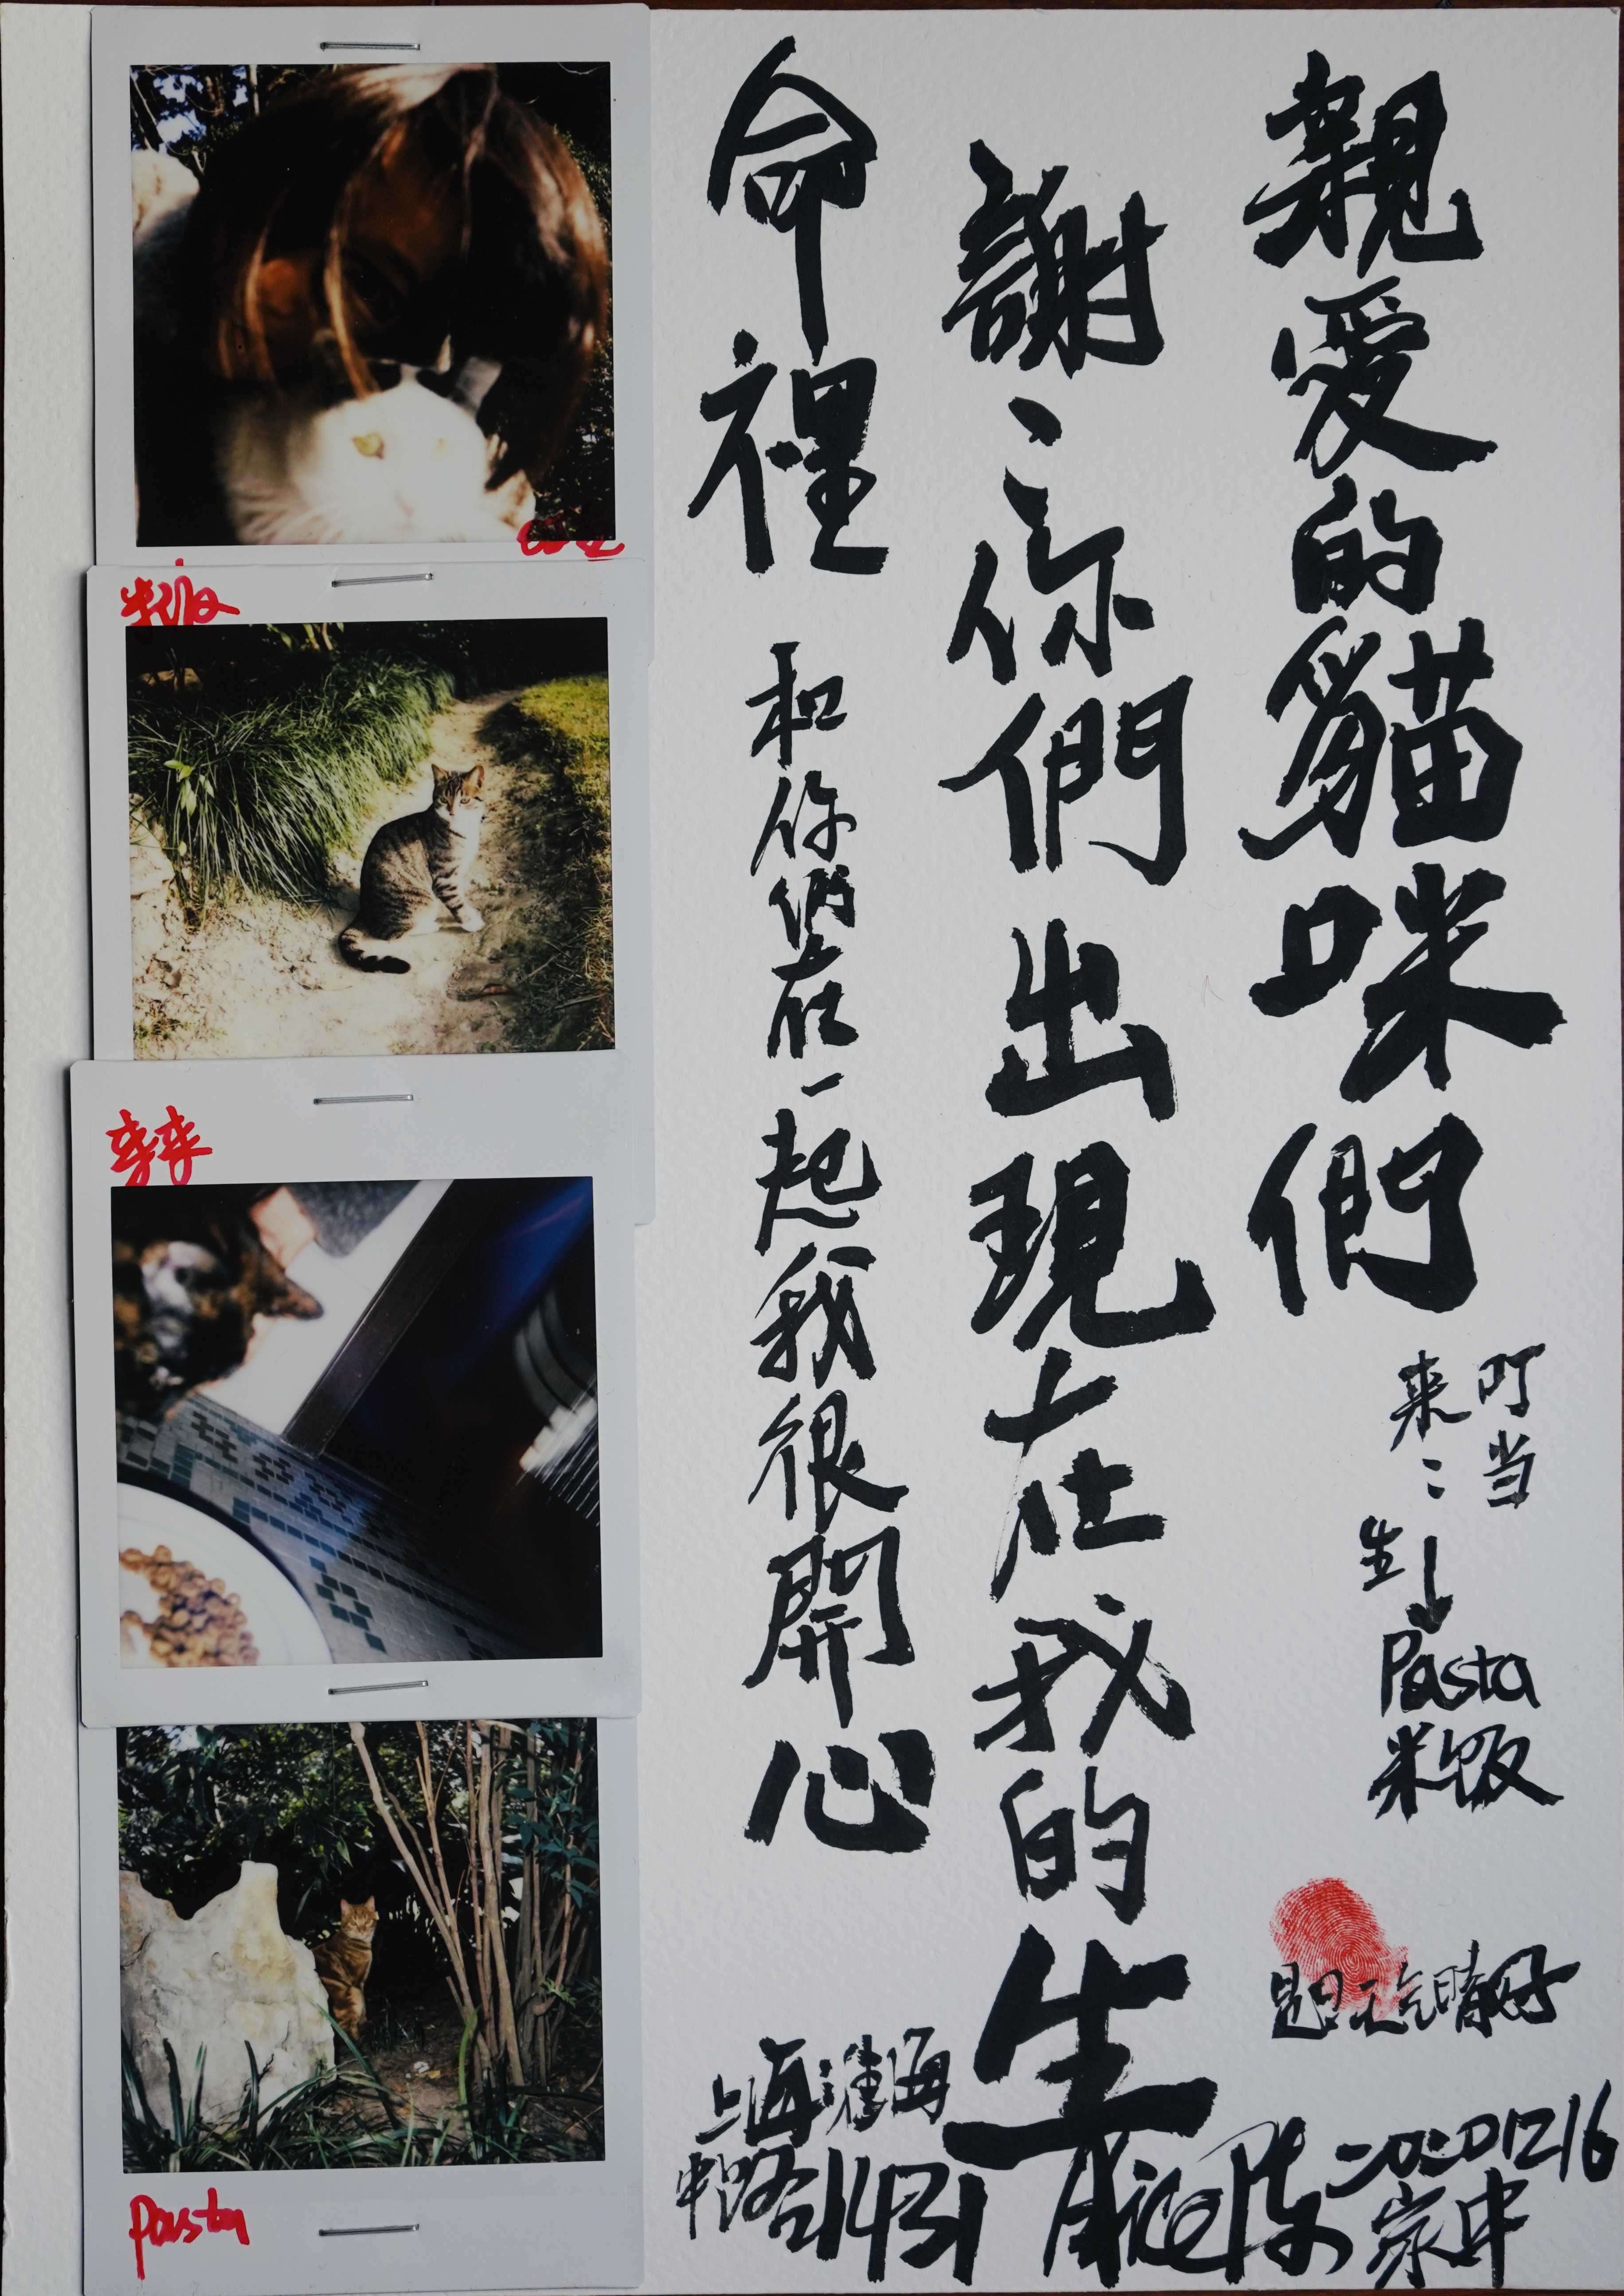 親愛的貓咪們
叮当
来：
生
Pasta
米饭
謝：你們出現在我的生
命裡
和你們在一起我很開心
天气晴好
20201216
家中
上海淮海
中路1431
米饭
来来
Pasta